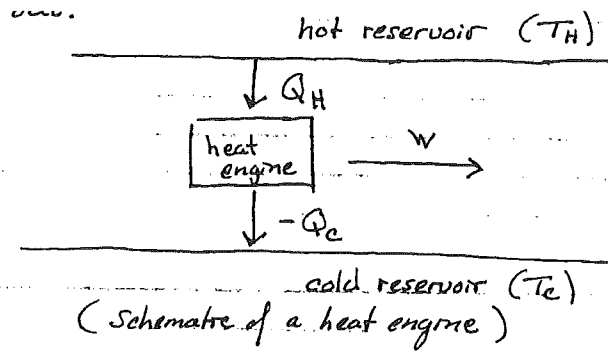 hot reservoir (T_H)
Q_H
heat
engine
W
-Q_c
cold reservoir (T_c)
(Schematic of a heat engine)